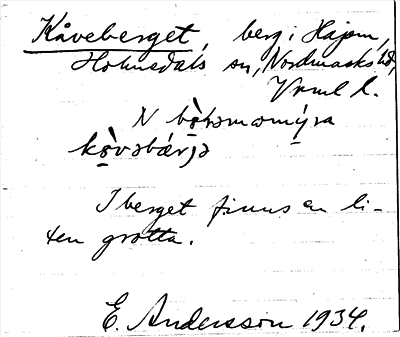 Kåveberget, berg i Häjom,
Holmedals sn, Nordmarks hd,
Vrml l.
N bò̤tωmωmý̤ra
kò̤vəbærjə
I berget finns en li-
ten grotta.
E. Andersson 1934.